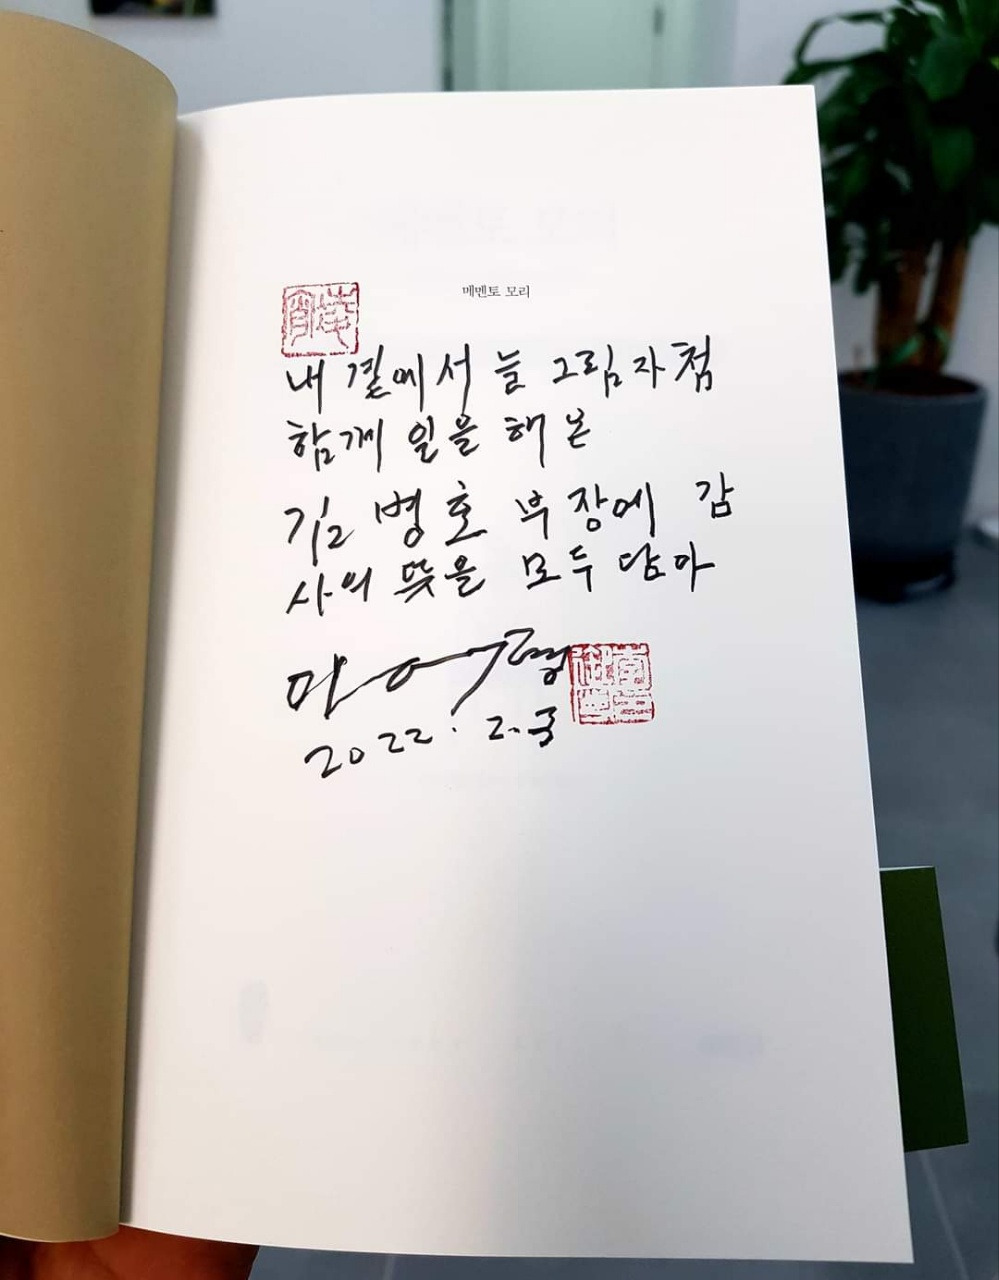 메멘토 모리
내 곁에서 늘 그림자첨
함께 일을 해 온
김병호 부장에 감
사의 뜻을 모두 담아
2022. 2.